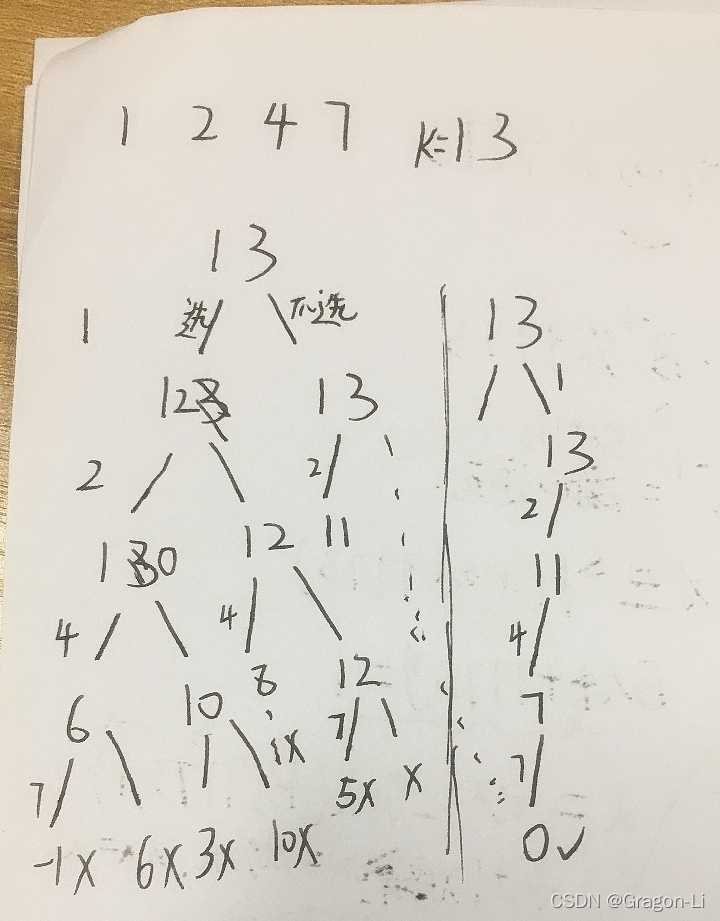 1 2 4 7 K=13
13
1 选 不选
12 13
2 2
10 12 11
4 4
6 10 8 12
7 7 X
-1X 6X 3X 10X 5X X
13
1
13
2
11
4
7
7
0✓
CSDN @Gragon-Li